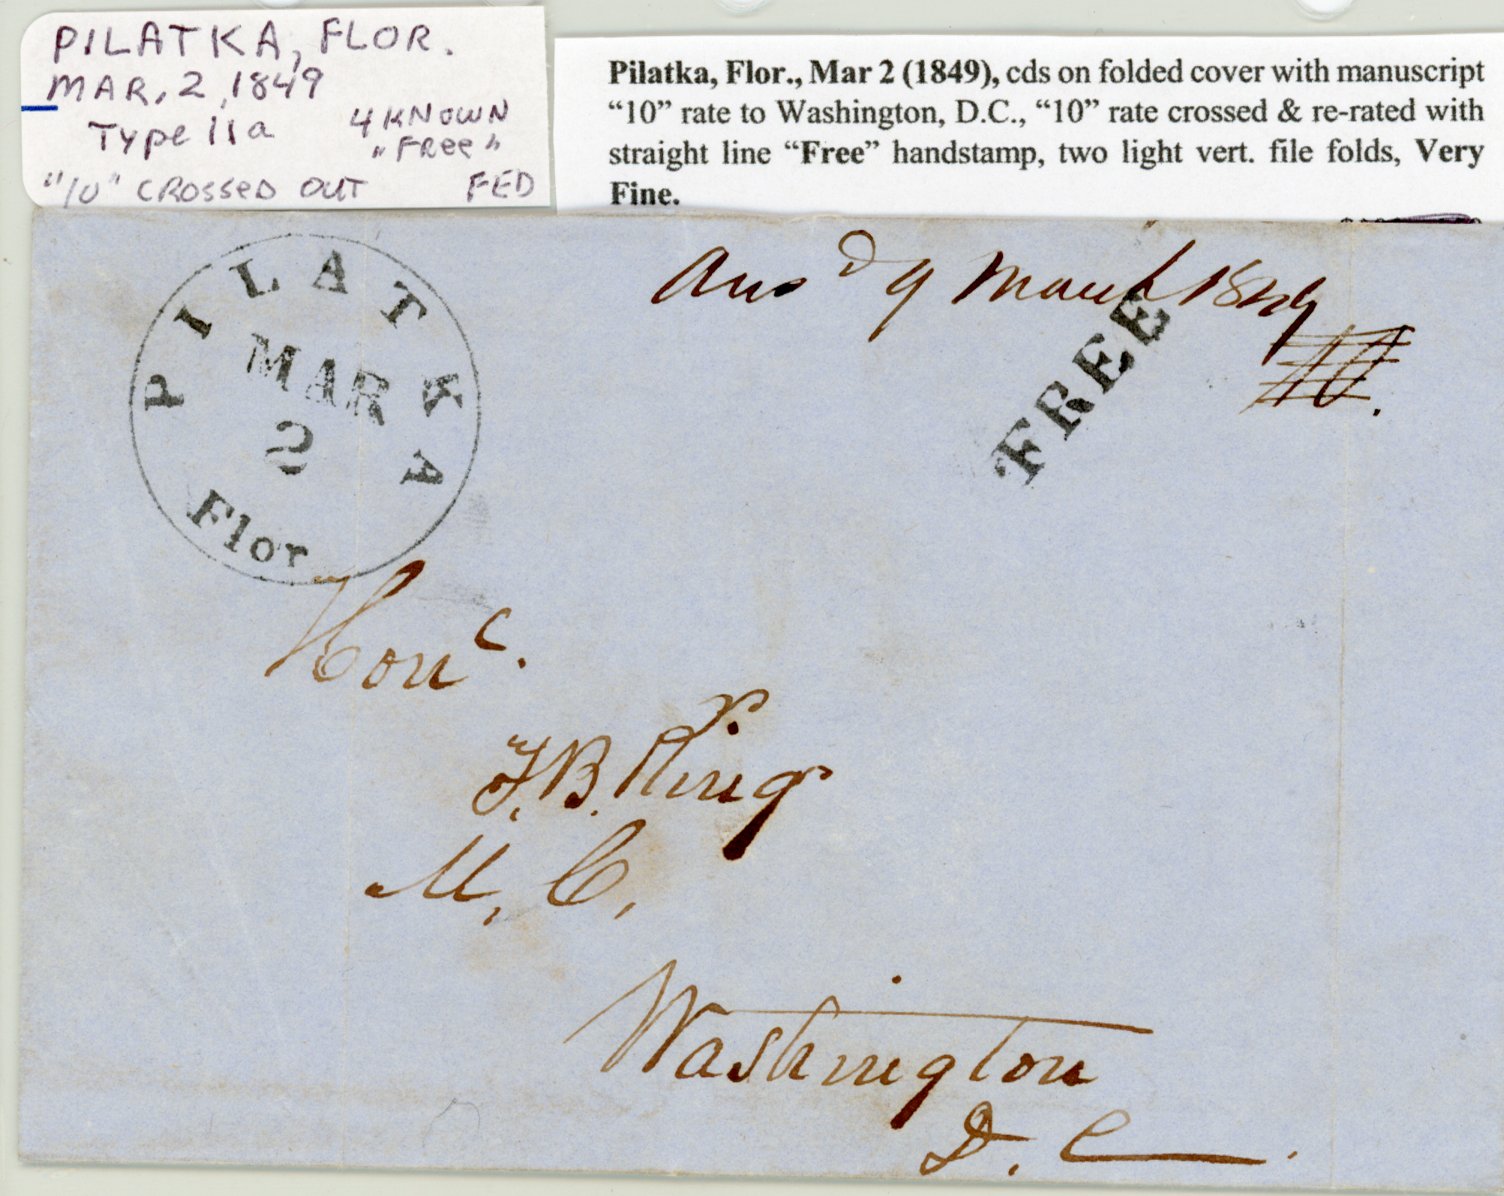 PILATKA, FLOR.
MAR, 2, 1849
Type IIa
4 KNOWN
"FRee"
"10" CROSSED OUT
FED
Pilatka, Flor., Mar 2 (1849), cds on folded cover with manuscript
“10” rate to Washington, D.C., “10” rate crossed & re-rated with
straight line “Free” handstamp, two light vert. file folds, Very
Fine.
PILATKA
MAR
2
Flor
Ansd 9 March 1849
FREE
10.
Honc.
T.B. King
M.C.
Washington
D.C.